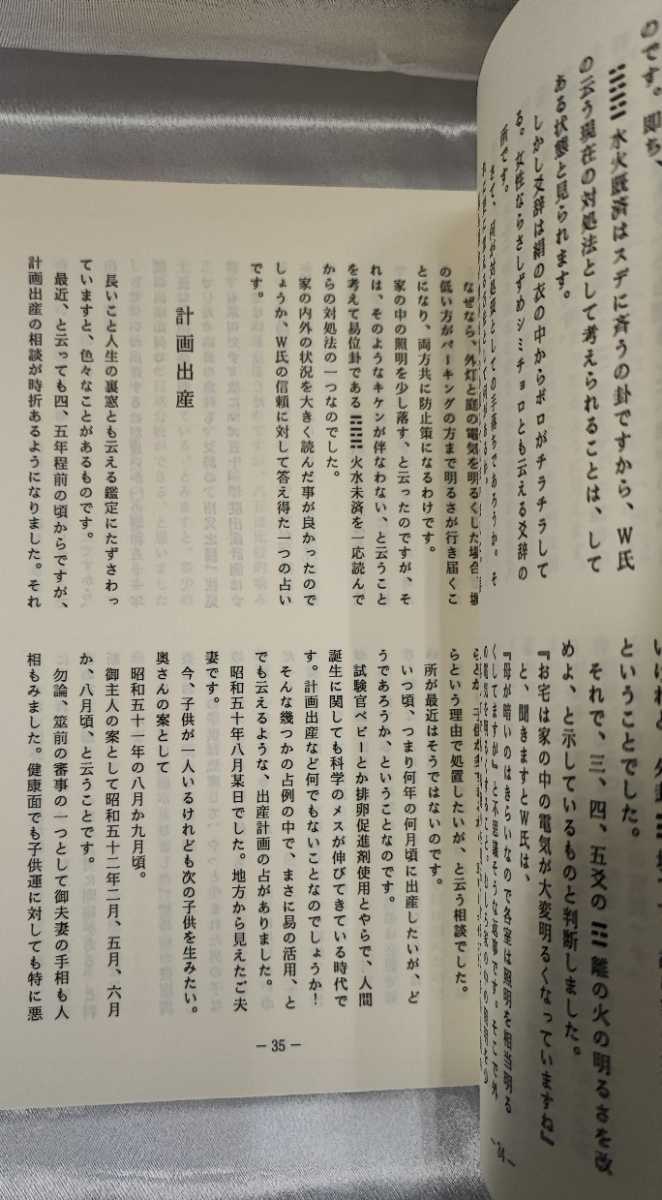 のです。即ち、
䷾ 水火既済はスデに斉うの卦ですから、W氏
の云う現在の対処法として考えられることは、して
ある状態と見られます。
しかし爻辞は絹の衣の中からボロがチラチラして
る。女性ならさしずめシミチョロとも云える爻辞の
所です。
さて、何が対処法としての手落ちであろうか。そ
ということでした。
それで、三、四、五爻の ☲ 離の火の明るさを改
めよ、と示しているものと判断しました。
『お宅は家の中の電気が大変明るくなっていますね』
と、聞きますとW氏は、
『母が暗いのはきらいなので各室は照明を相当明る
くしてますが』と不思議そうな返事です。そこで外
の電気を明るくすること。むしろ家の中の照明を少
－34－
なぜなら、外灯と庭の電気を明るくした場合、塀
の低い方がパーキングの方まで明るさが行き届くこ
とになり、両方共に防止策になるわけです。
家の中の照明を少し落す、と云ったのですが、そ
れは、そのようなキケンが伴なわない、と云うこと
を考えて易位卦である ䷿ 火水未済を一応読んで
からの対処法の一つなのでした。
家の内外の状況を大きく読んだ事が良かったので
しょうか、W氏の信頼に対して答え得た一つの占い
です。
計画出産
長いこと人生の裏窓とも云える鑑定にたずさわっ
ていますと、色々なことがあるものです。
最近、と云っても四、五年程前の頃からですが、
計画出産の相談が時折あるようになりました。それ
らという理由で処置したいが、と云う相談でした。
所が最近はそうではないのです。
いつ頃、つまり何年の何月頃に出産したいが、ど
うであろうか、ということなのです。
試験官ベビーとか排卵促進剤使用とやらで、人間
誕生に関しても科学のメスが伸びてきている時代で
す。計画出産など何でもないことなのでしょうか！
そんな幾つかの占例の中で、まさに易の活用、と
でも云えるような、出産計画の占がありました。
昭和五十年八月某日でした。地方から見えたご夫
妻です。
今、子供が一人いるけれども次の子供を生みたい。
奥さんの案として
昭和五十一年の八月か九月頃。
御主人の案として昭和五十二年二月、五月、六月
か、八月頃、と云うことです。
勿論、筮前の審事の一つとして御夫妻の手相も人
相もみました。健康面でも子供運に対しても特に悪
－35－